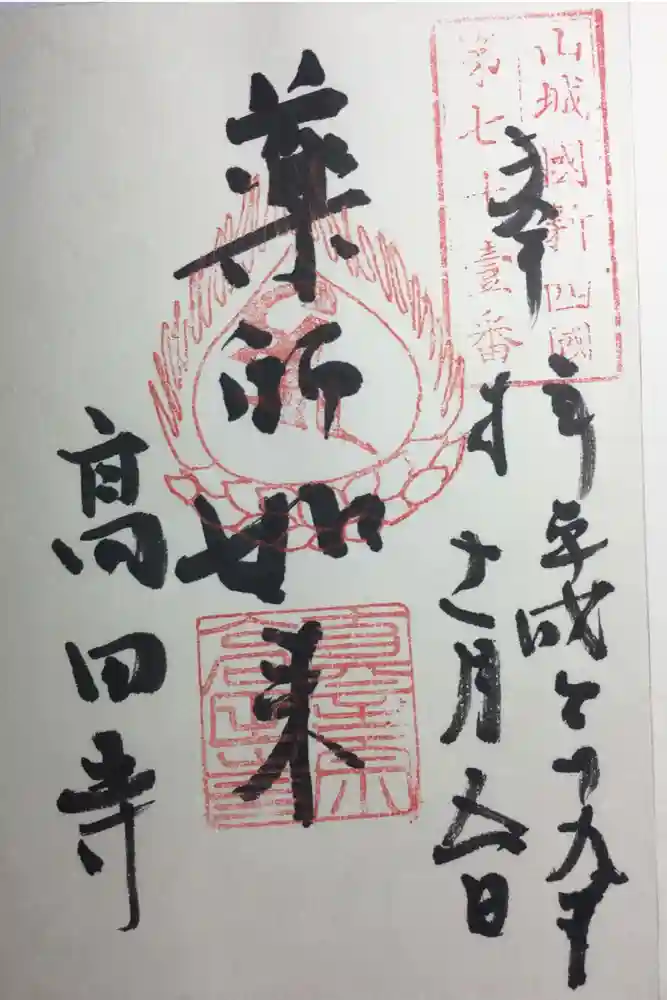 山城國新四國
第七十壹番
奉拝
平成二十九年
月五日
薬師如来
高田寺